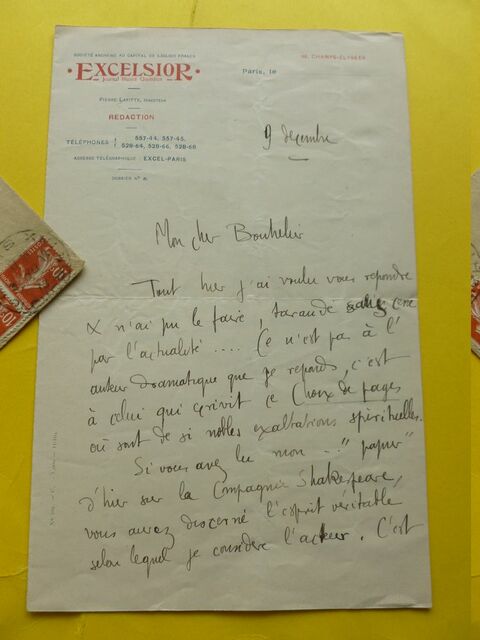 SOCIÉTÉ ANONYME AU CAPITAL DE FRANCS
88, CHAMPS-ÉLYSÉES
• EXCELSIOR •
Journal Illustré Quotidien
Paris, le
PIERRE LAFITTE, DIRECTEUR
RÉDACTION
9 décembre
TÉLÉPHONES
557-44, 557-45,
528-64, 528-66, 528-68
ADRESSE TÉLÉGRAPHIQUE : EXCEL-PARIS
DOSSIER N° R.
Mon cher Bouhelier
Tout hier j'ai voulu vous repondre
& n'ai pu le faire, taraudé sans cesse
par l'actualité .... Ce n'est pas à l'
auteur dramatique que je reponds, c'est
à celui qui écrivit ce Choix de pages
où sont de si nobles exaltations spirituelles.
Si vous avez lu mon "papier"
d'hier sur la Compagnie Shakespeare,
vous aurez discerné l'esprit véritable
selon lequel je considere l'acteur. C'est
10